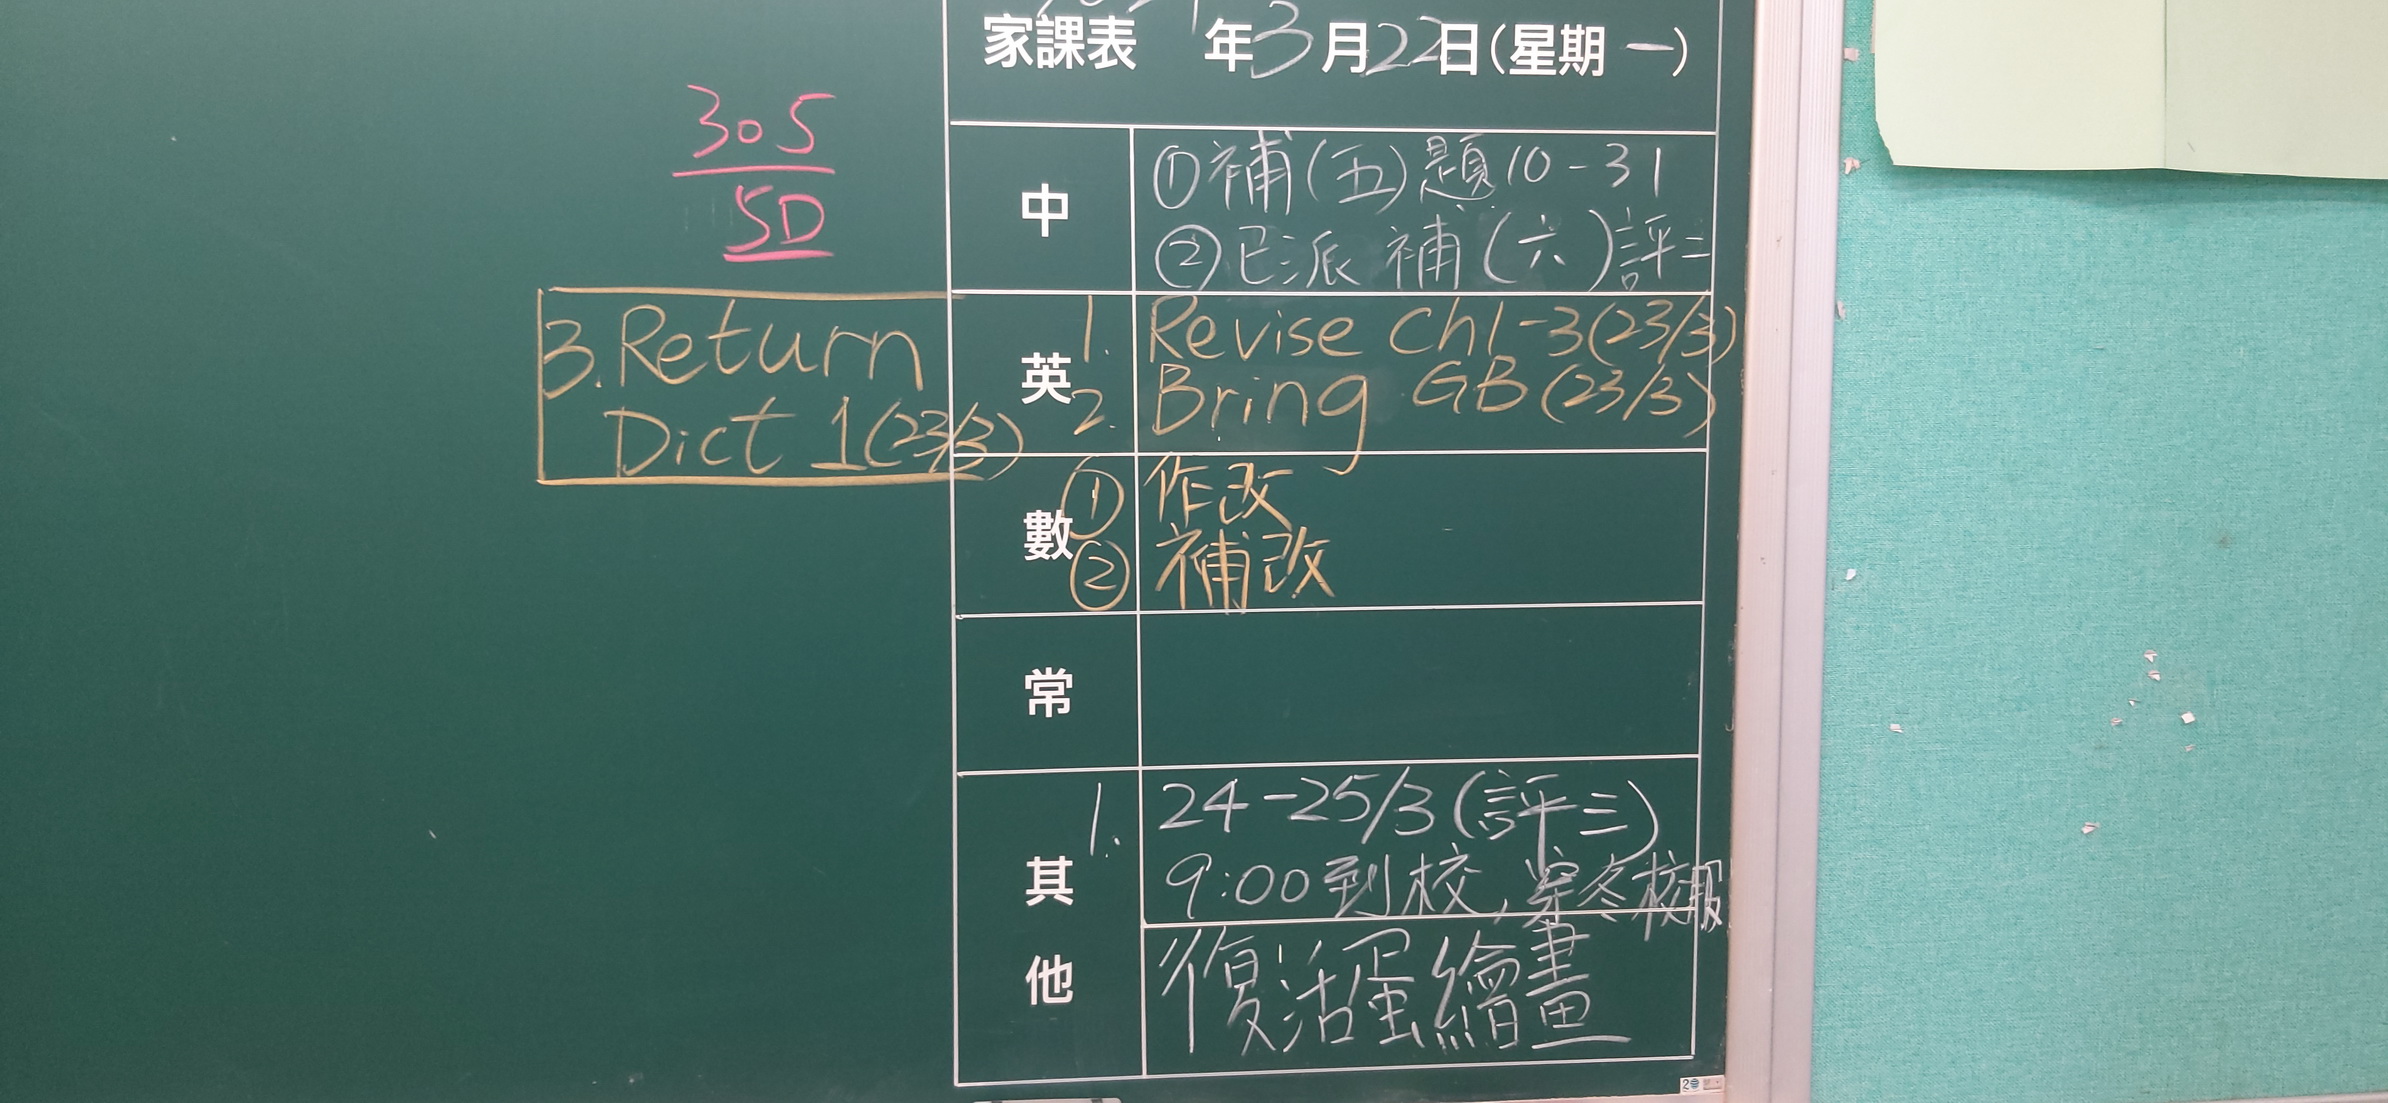 家課表 年3月22日(星期一)
305
5D
中
①補(五)題10-31
②已派補(六)評二
英
1. Revise Ch1-3(23/3)
2. Bring GB(23/3)
3. Return
Dict 1(23/3)
數
①作改
②補改
常
其他
1. 24-25/3(評三)
9:00到校,穿冬校服
復活蛋繪畫